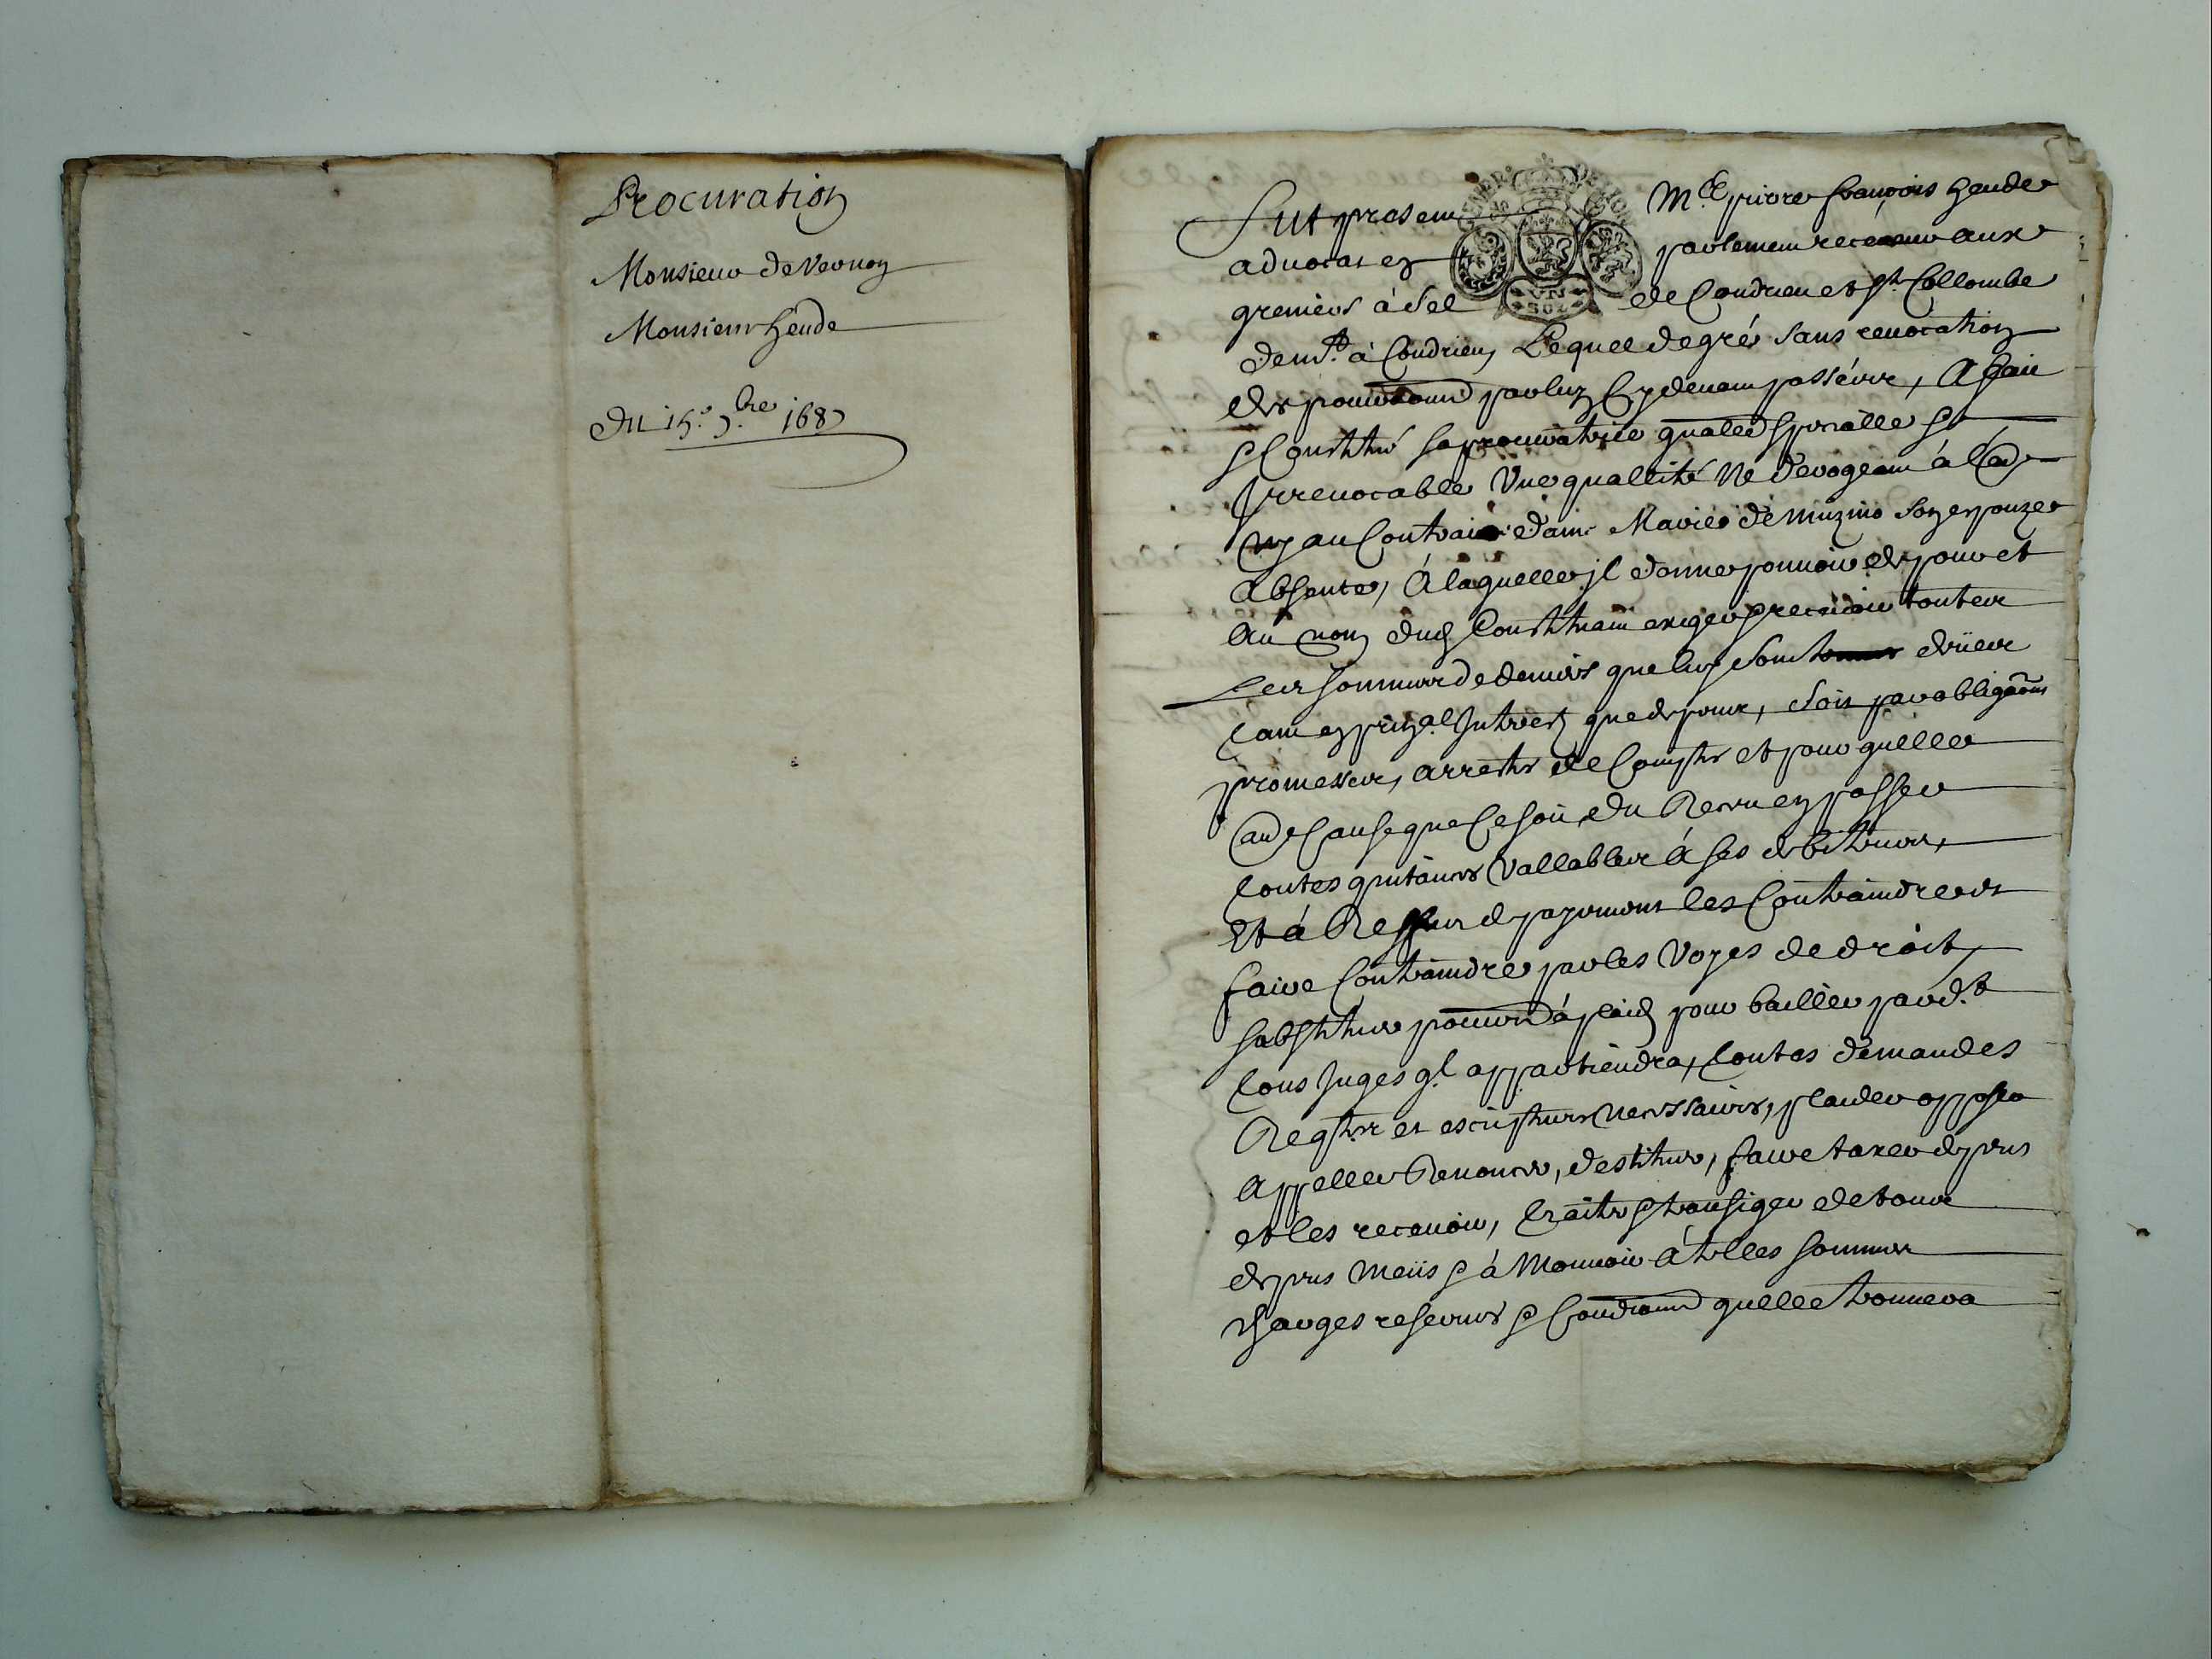 Procuration
Monsieur de Vernoy
Monsieur heude
Du 15.e 7.bre 1687
Fut present Me pierre françois heude
advocat en parlement receveur aux
greniers à sel de Condrieu et ste Collombe
UN
SOL
demt. à Condrieu Lequel de gré sans revocation
des par luy Cy devant passées, A fait
& Constitué sa procuratrice gnalle specialle &
Irrevocable Une quallité Ne derogeant à l'au
ny au Contraire dame Marie son espouze
Absente, A laquelle il donne pouvoir de pour et
Au nom dud Constituant exiger & recevoir toutes
Les sommes de deniers que luy sont deües
tant en prinpal Interests que despens, soit par obligaons
promesses, arrestés de Comptes et pour quelle
autre cause que Ce soit, du Receu en passer
toutes quitances Vallables à ses debiteurs,
Et à Reffus de payement les Contraindre et
faire Contraindre par les Voyes de droit,
substituer à plaid pour bailler pardt
tous Juges ql appartiendra, toutes demandes
Reqtes et escriptures necessaires, plaider opposer
Appeller Renoncer, destituer, faire taxer despens
et les recevoir, traiter & transiger de tous
despens Meüs & à Mouvoir à telles sommes
charges reserves & Condraons quelle trouvera